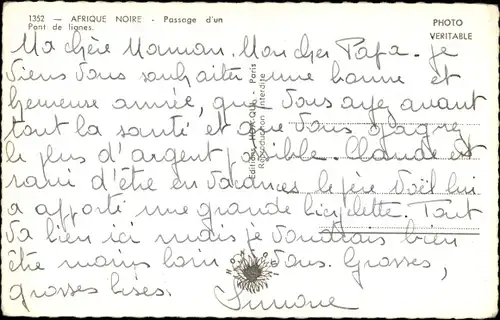 1352 — AFRIQUE NOIRE - Passage d'un
Pont de lianes.
PHOTO
VERITABLE
Ma chère Maman. Mon cher Papa. Je
viens vous souhaiter une bonne et
heureuse année, que vous ayez avant
tout la santé et que vous gagnez
le plus d'argent possible. Claude est
ravi d'être en vacances, le père Noël lui
a apporté une grande bicyclette. Tout
va bien ici mais je voudrais bien
être moins loin de vous. Grosses,
grosses bises.
Simone
Editions - Paris
Reproduction Interdite